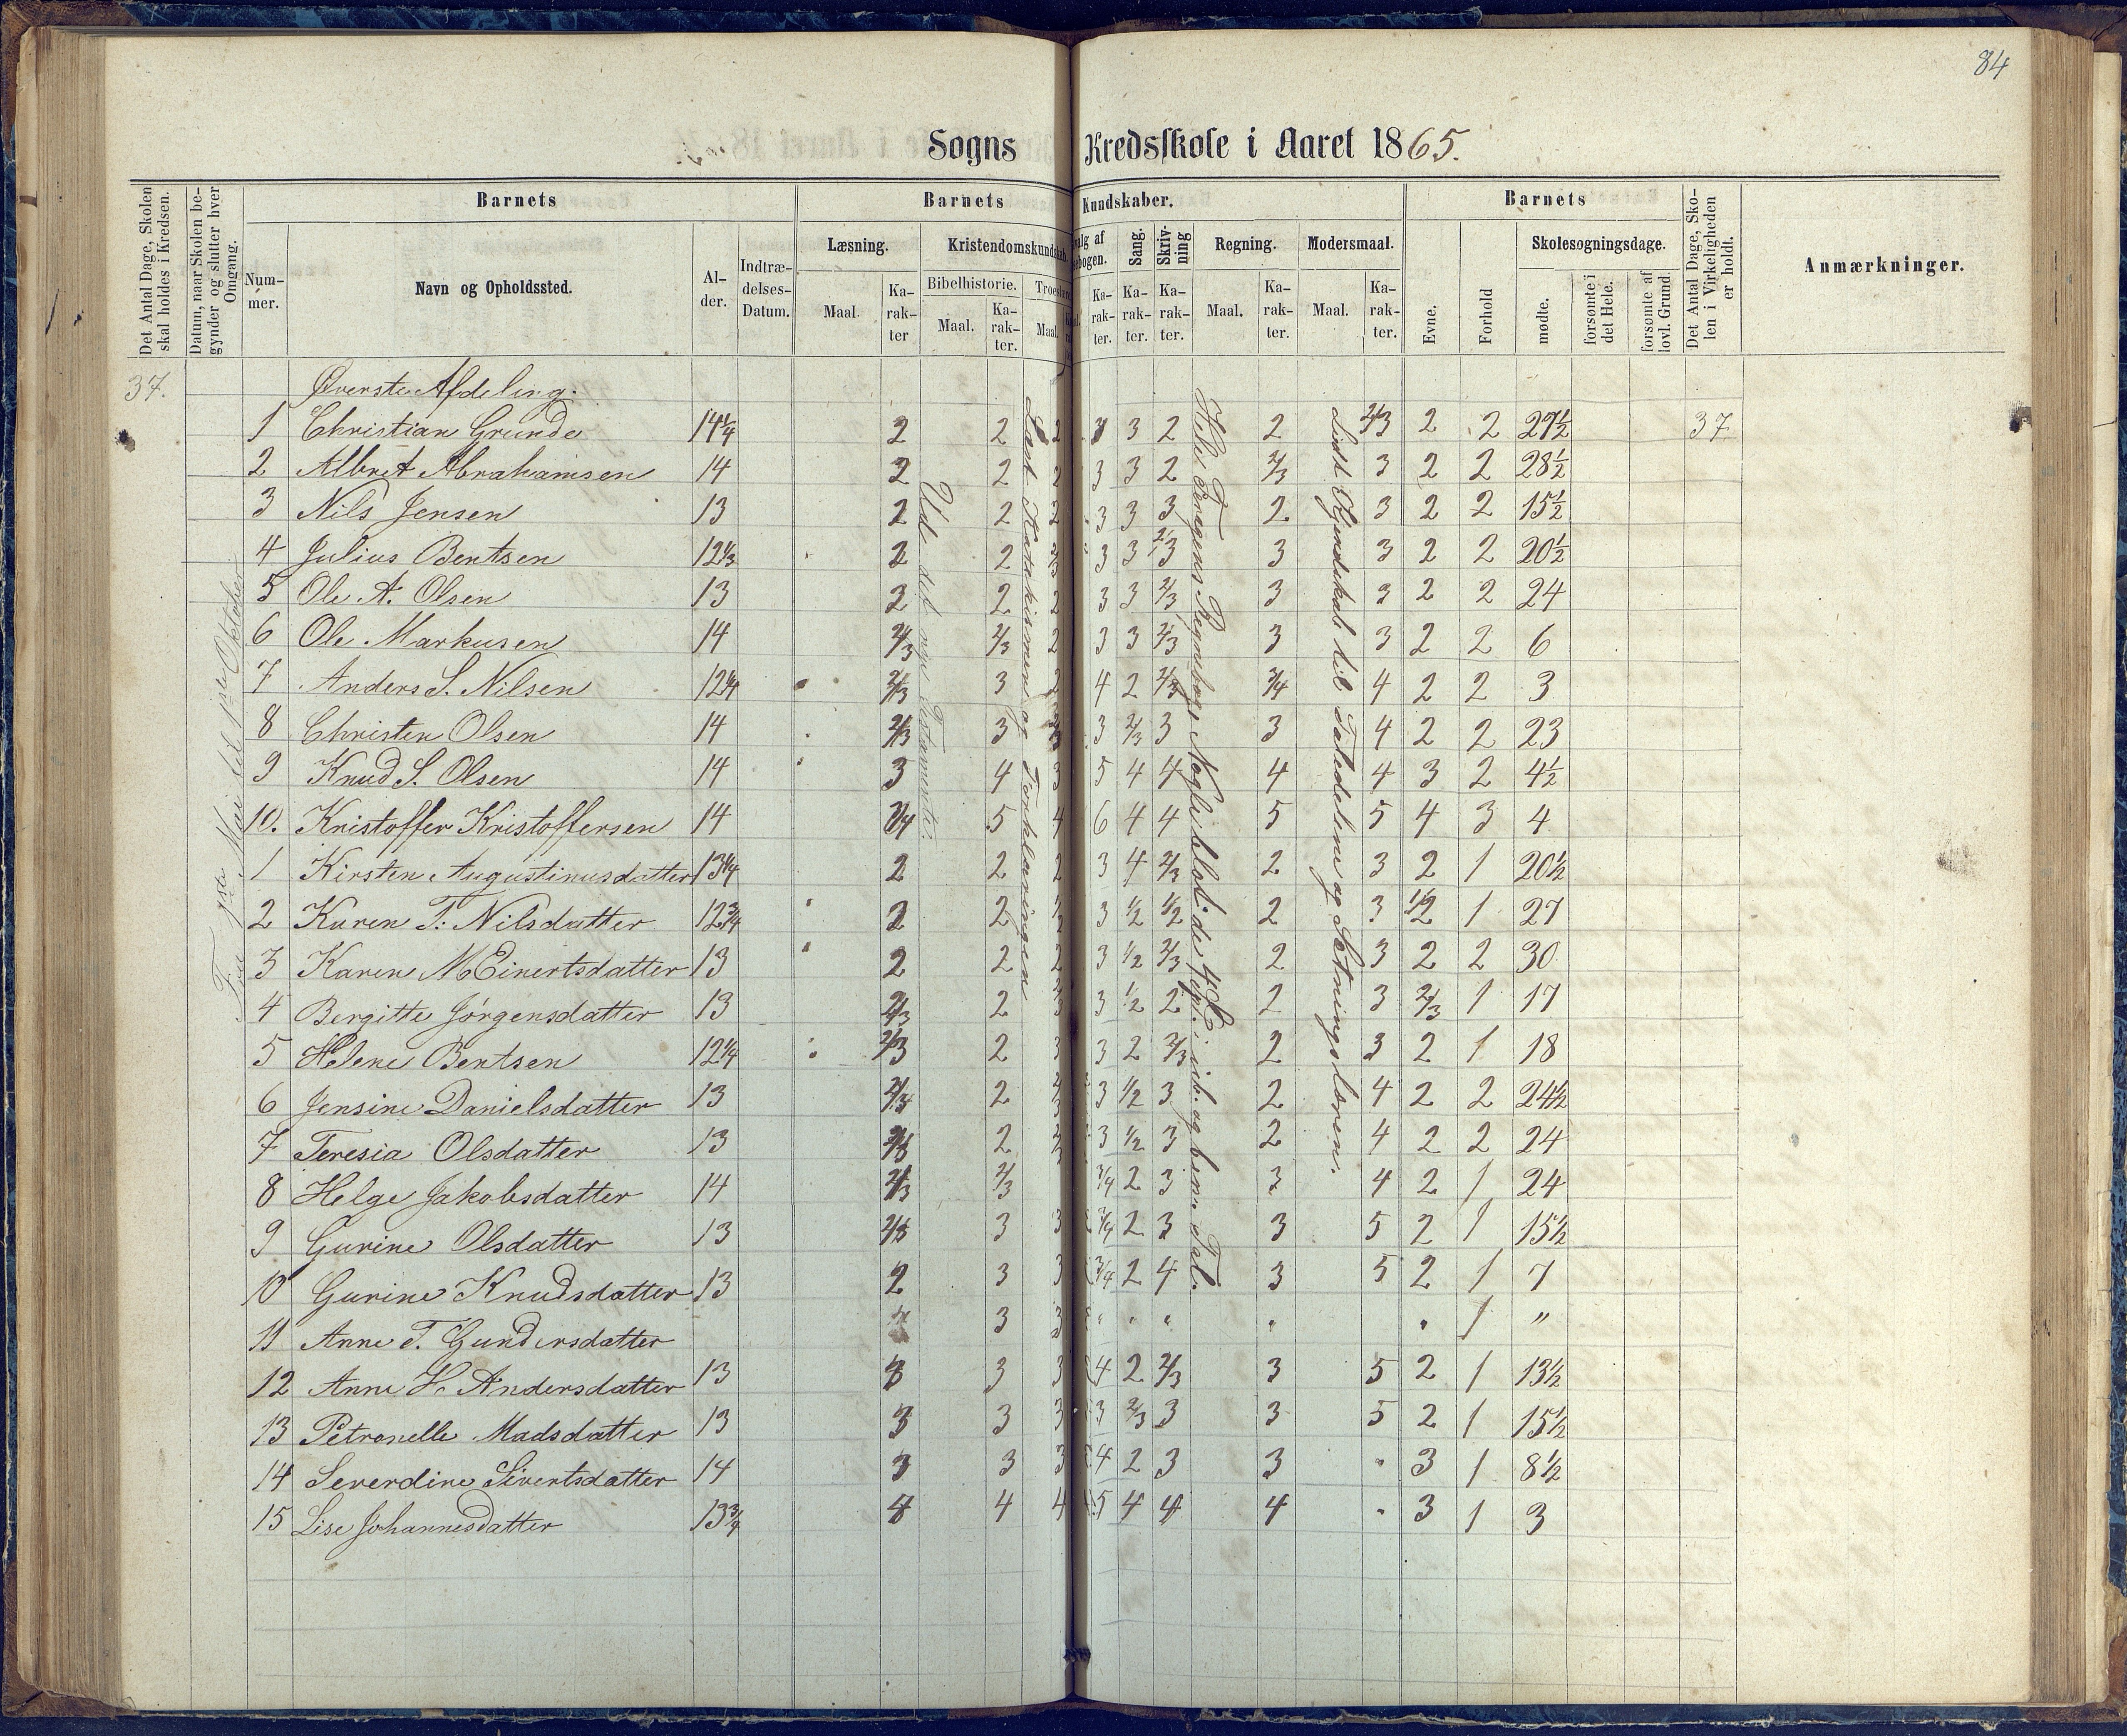 84
Sogns Kredsskole i Aaret 1865.
Det Antal Dage, Skolen skal holdes i Kredsen.
Datum, naar Skolen begynder og slutter hver Omgang.
Barnets
Barnets Kundskaber.
Barnets
Det Antal Dage, Skolen i Virkeligheden er holdt.
Anmærkninger.
Nummer.
Navn og Opholdssted.
Alder.
Indtrædelses-Datum.
Læsning.
Kristendomskundskab.
Sang.
Skrivning
Regning.
Modersmaal.
Evne.
Forhold
Skolesøgningsdage.
Bibelhistorie.
Maal.
Karakter
Maal.
Karakter.
Maal.
Karakter.
Karakter.
Karakter.
Maal.
Karakter.
Maal.
Karakter.
mødte.
forsømte i det Hele.
forsømte af lovl. Grund.
37.
Øverste Afdeling.
1 Christian Grunde 14 1/4 2 2 2 3 2 2 2/3 2 2 27 1/2 37
2 Albret Abrahamsen 14 2 2 2 3 3 2 2/3 3 2 2 28 1/2
3 Nils Jensen 13 2 2 2 3 3 3 2 3 2 2 15 1/2
4 Julius Bentsen 12 1/3 2 2 3 3 2/3 3 3 2 2 20 1/2
5 Ole A. Olsen 13 2 2 2 3 3 2/3 3 3 2 2 24
6 Ole Markusen 14 2/3 2/3 2 3 3 2/3 3 3 2 2 6
7 Anders S. Nilsen 12 1/4 2/3 3 2 4 2 2/3 3/4 4 2 2 3
8 Christen Olsen 14 2/3 3 3 2/3 3 3 4 2 2 23
9 Knud S. Olsen 14 3 4 3 5 4 4 4 4 3 2 4 1/2
10. Kristoffer Kristoffersen 14 3/4 5 4 6 4 4 5 5 4 3 4
1 Kirsten Augustinusdatter 13 1/4 2 2 2 3 4 2/3 2 3 2 1 20 1/2
2 Karen T. Nilsdatter 12 3/4 2 2 3 1/2 1/2 2 3 1/2 1 27
3 Karen M Einertsdatter 13 2 2 2 3 1/2 2/3 2 3 2 2 30
4 Bergitte Jørgensdatter 13 2/3 2 3 1/2 2 2 3 2/3 1 17
5 Helene Bentsen 12 1/4 2/3 2 3 2 2/3 2 3 2 1 18
6 Jensine Danielsdatter 13 2/3 2 3 1/2 3 2 4 2 2 24 1/2
7 Teresia Olsdatter 13 2/3 2 3 1/2 3 2 4 2 2 24
8 Helge Jakobsdatter 14 2/3 2/3 3/4 2 3 3 4 2 1 24
9 Gurine Olsdatter 13 2/3 3 3 3/4 2 3 3 5 2 1 15 1/2
10 Gurine Knudsdatter 13 2 3 3 3/4 2 4 3 5 2 1 7
11 Anne T. Gundersdatter 3 3 " " " " " 1 "
12 Anne H. Andersdatter 13 3 3 4 2 2/3 3 5 2 1 13 1/2
13 Petronelle Madsdatter 13 3 3 3 3 2/3 3 3 5 2 1 15 1/2
14 Severdine Sivertsdatter 14 3 3 3 4 2 3 3 " 3 1 8 1/2
15 Lise Johannesdatter 13 3/4 4 4 4 5 4 4 4 " 3 1 3
Fra 1ste Mai til 1ste Oktober
Ud det nye Testamente.
Læst Katekismen og Forklaringen
Hele Regnebog
Lidt Kjendskab til Taledelene og Sætningslæren.